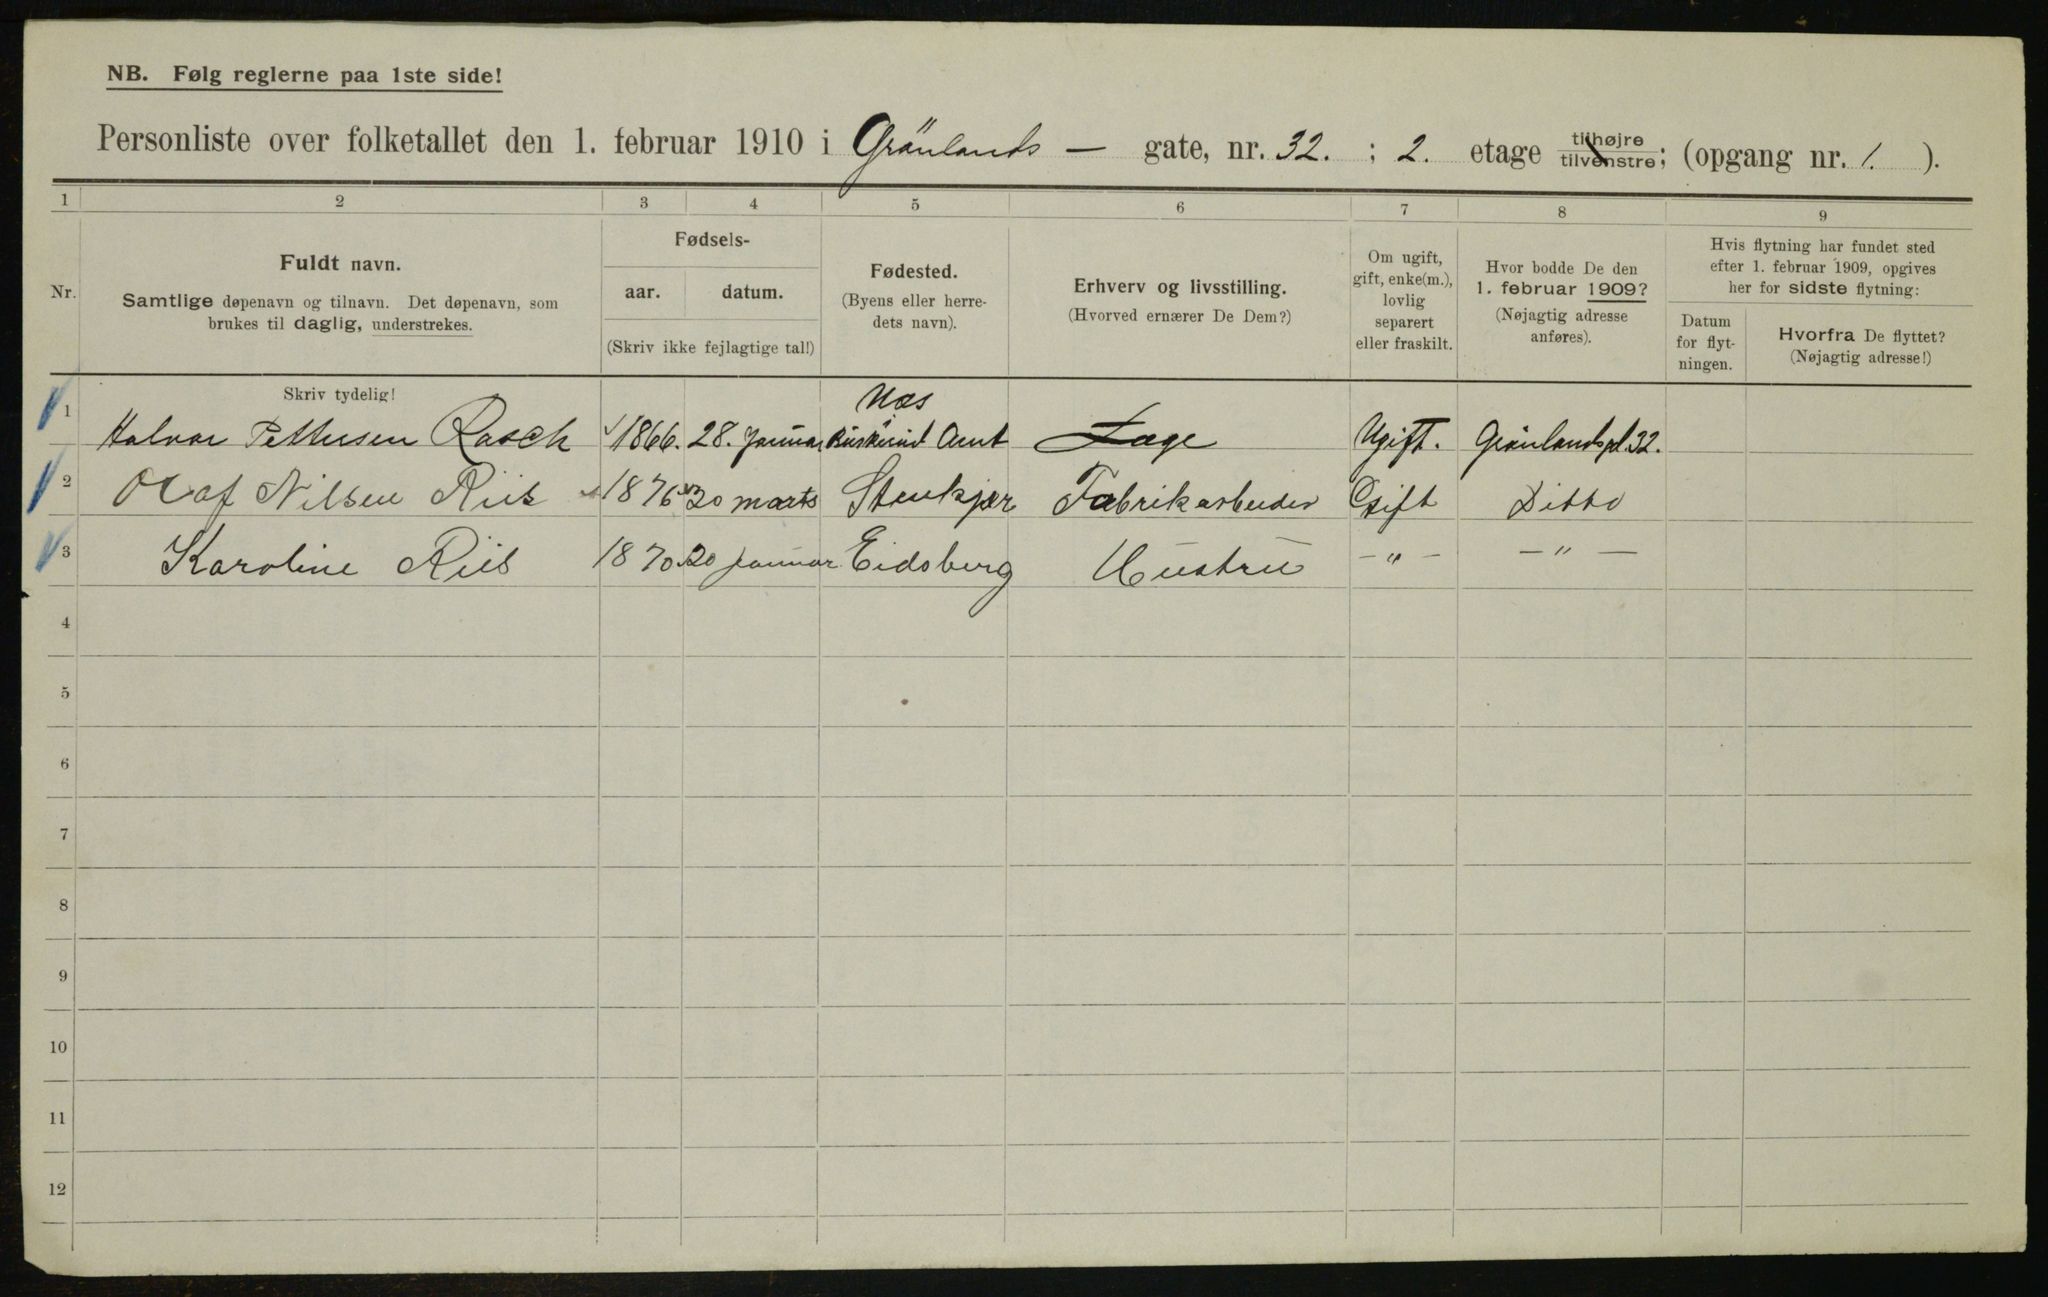 NB. Følg reglerne paa 1ste side!
Personliste over folketallet den 1. februar 1910 i Grönlands — gate, nr. 32. ; 2. etage tilhøjre tilvenstre; (opgang nr. 1. ).
1 2 3 4 5 6 7 8 9
Nr.
Fuldt navn.
Samtlige døpenavn og tilnavn. Det døpenavn, som
brukes til daglig, understrekes.
Fødsels-
aar. datum.
(Skriv ikke fejlagtige tal!)
Fødested.
(Byens eller herre-
dets navn).
Erhverv og livsstilling.
(Hvorved ernærer De Dem?)
Om ugift,
gift, enke(m.),
lovlig
separert
eller fraskilt.
Hvor bodde De den
1. februar 1909?
(Nøjagtig adresse
anføres).
Hvis flytning har fundet sted
efter 1. februar 1909, opgives
her for sidste flytning:
Datum
for flyt-
ningen.
Hvorfra De flyttet?
(Nøjagtig adresse!)
Skriv tydelig!
Næs
1 Halvor Rasch 1866. 28. Januar Buskerud Amt Læge Ugift. Grönlands 32.
2 Olaf Nilsen Riis 1876 20 marts Stenkjær Fabrikarbeider Gift Ditto
3 Karoline Riis 1870 20 Januar Eidsberg Hustru — " — — " —
4
5
6
7
8
9
10
11
12